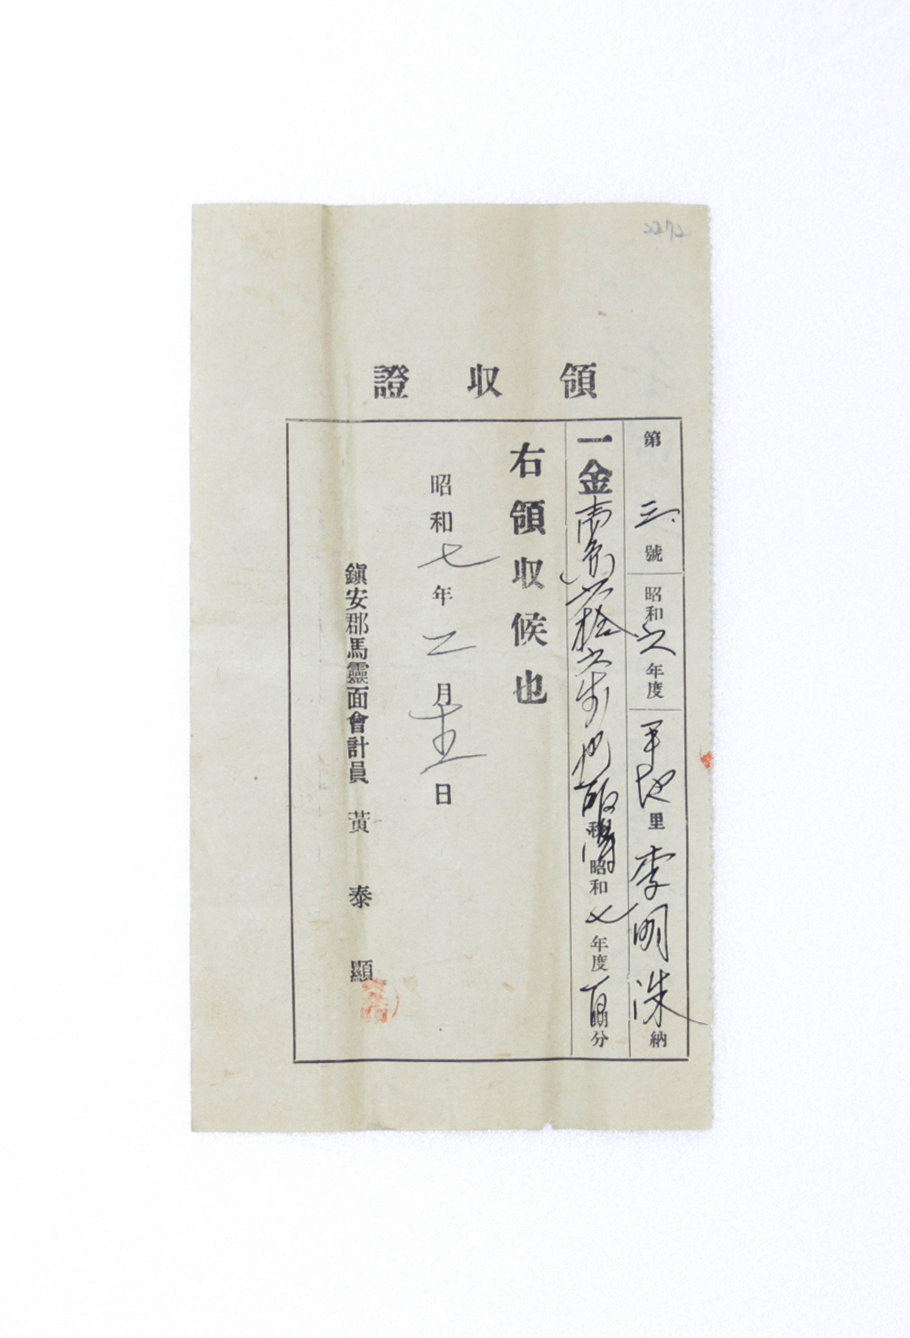 領收證
第三號 昭和六年度 平地里 李明洙納
一金壹圓六拾六戔也 昭和七年度 分
右領收候也
昭和七年二月十五日
鎭安郡馬靈面會計員 黃泰顯